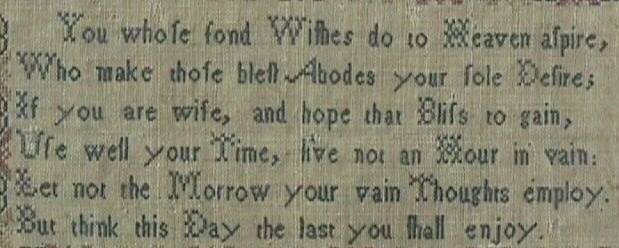 You whoſe fond Wiſhes do to Heaven aſpire,
Who make thoſe bleſt Abodes your ſole Deſire;
If you are wiſe, and hope that Bliſs to gain,
Uſe well your Time, live not an Hour in vain:
Let not the Morrow your vain Thoughts employ.
But think this Day the laſt you ſhall enjoy.